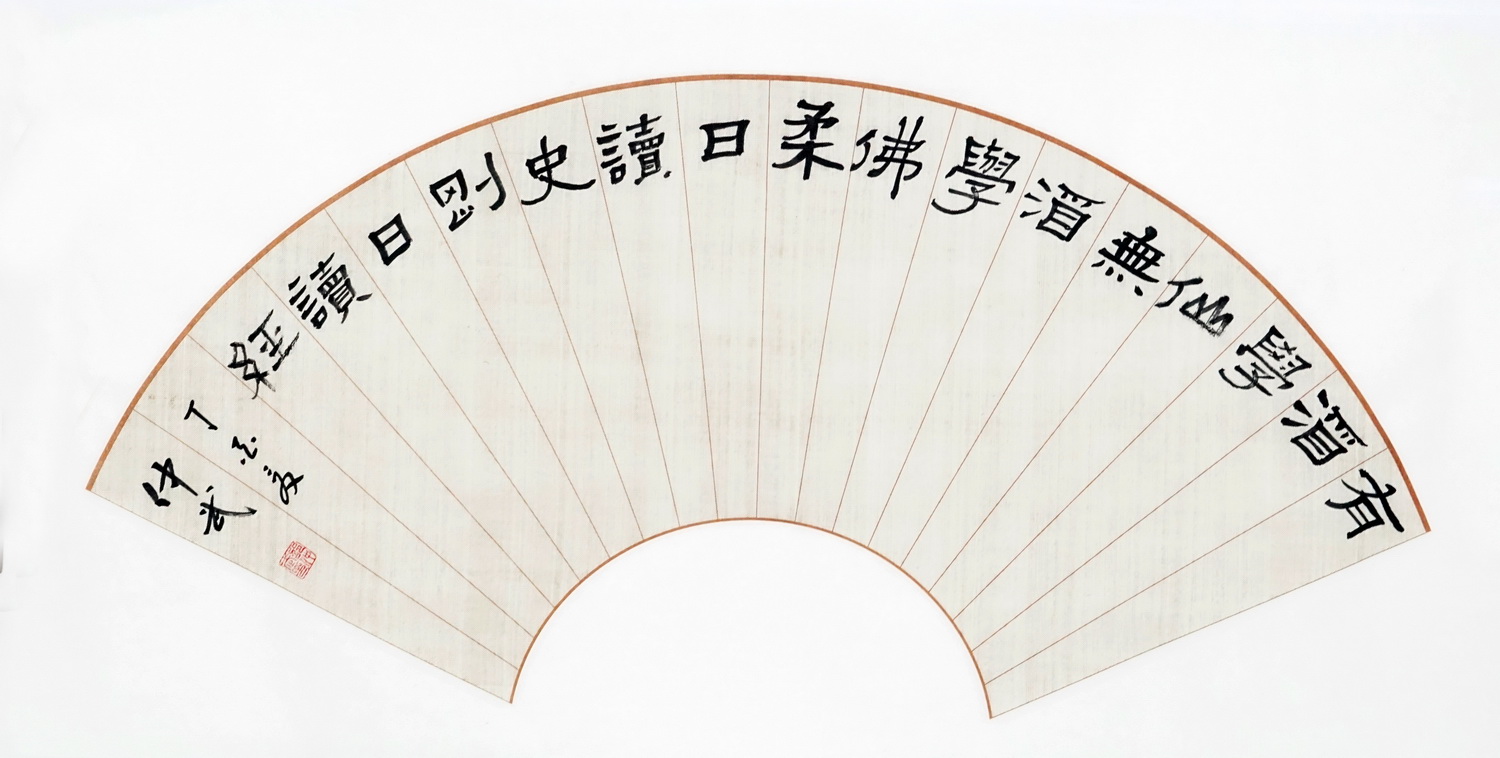 有酒學仙無酒學佛柔日讀史剛日讀經
丁亥夏
仲武